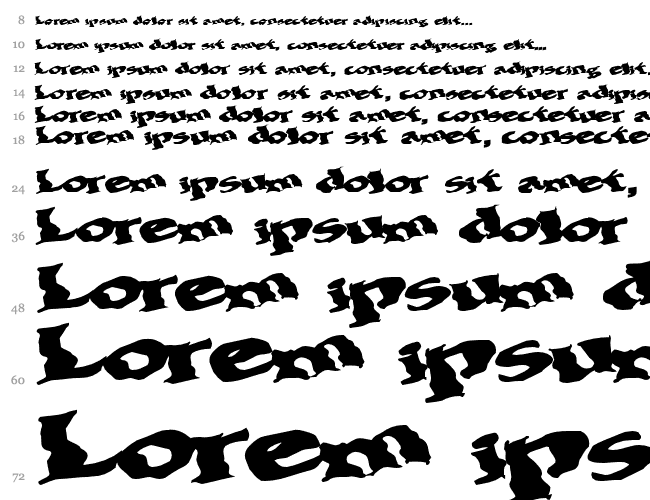 8 Lorem ipsum dolor sit amet, consectetuer adipiscing elit...
10 Lorem ipsum dolor sit amet, consectetuer adipiscing elit...
12 Lorem ipsum dolor sit amet, consectetuer adipiscing elit.
14 Lorem ipsum dolor sit amet, consectetuer adipis
16 Lorem ipsum dolor sit amet, consectetuer a
18 Lorem ipsum dolor sit amet, consecte
24 Lorem ipsum dolor sit amet,
36 Lorem ipsum dolor
48 Lorem ipsum d
60 Lorem ipsum
72 Lorem ips